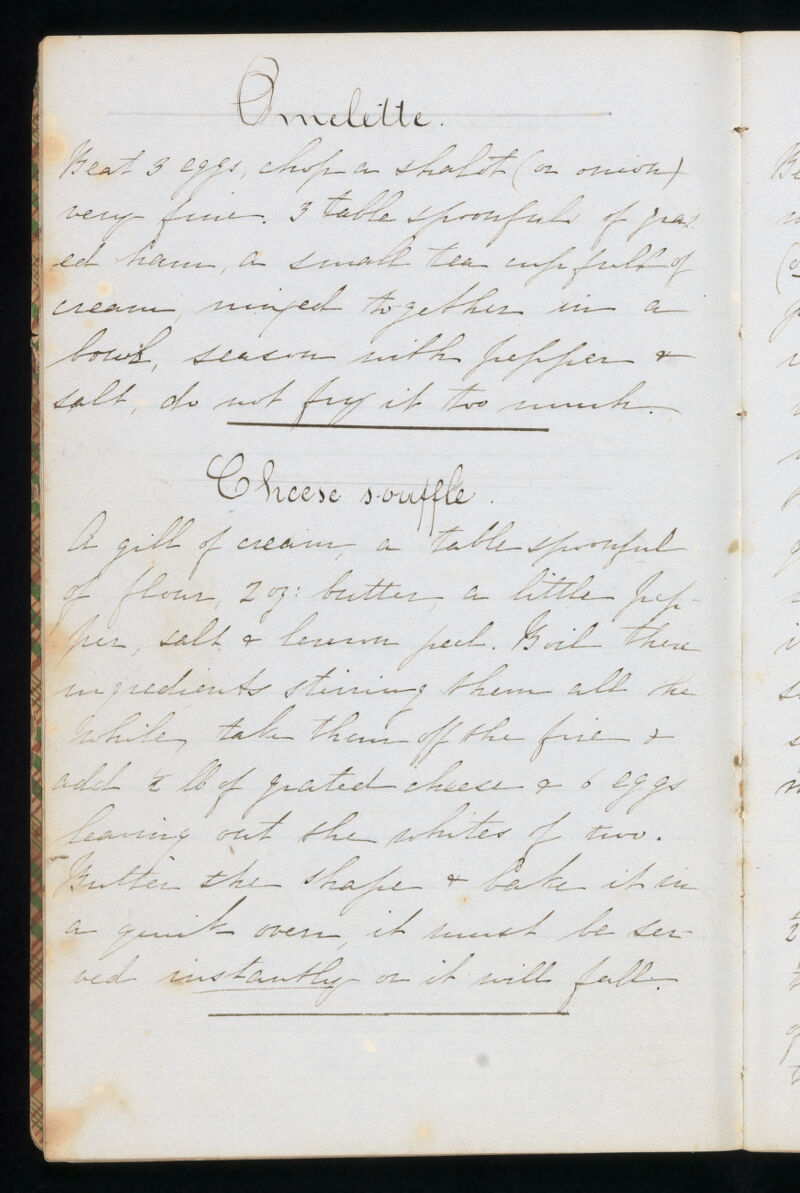 Omelette.
Beat 3 eggs, chop a shalot (or onion)
very fine. 3 table spoonfuls of grat
ed ham, a small tea cupfull of
cream, mixed together in a
bowl, season with pepper &
salt, do not fry it too much.
Cheese souffle.
A gill of cream, a table spoonful
of flour, 2 oz: butter, a little pep-
per, salt & lemon peel. Boil these
ingredients stirring them all the
while, take them off the fire &
add lb of grated cheese & 6 eggs
leaving out the whites of two.
Butter the shape & bake it in
a quick oven, it must be ser-
ved instantly or it will fall.